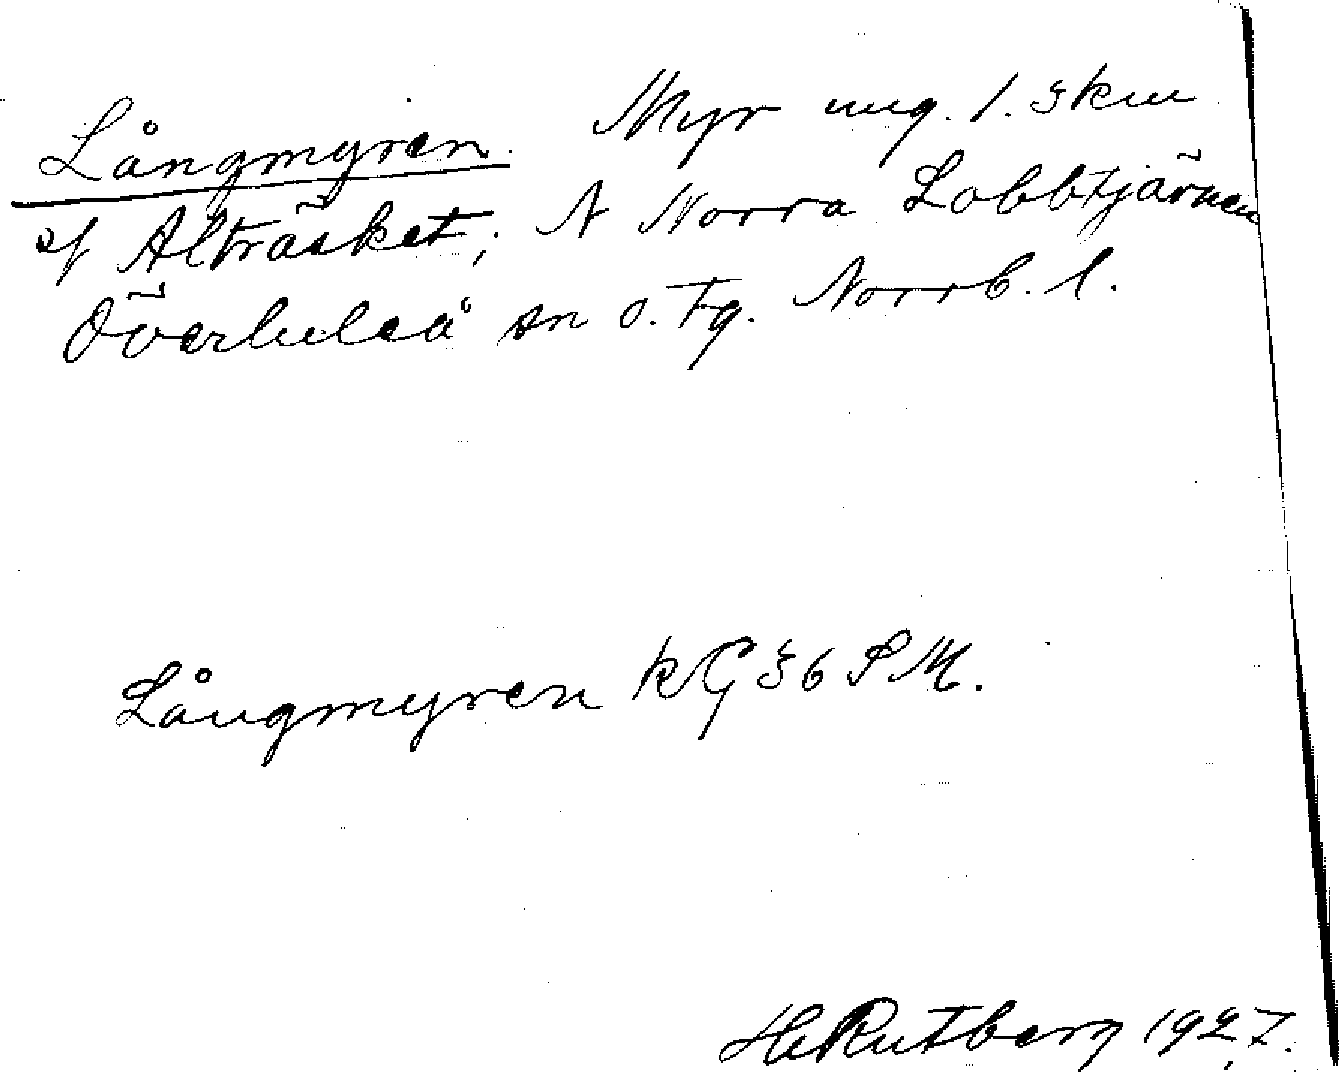 Långmyren. Myr ung. 1.3 km
af Alträsket, N Norra Lobbtjärnen
Överluleå sn o. tg. Norrb. l.
Långmyren kG 36 SM.
H Rutberg 1927.